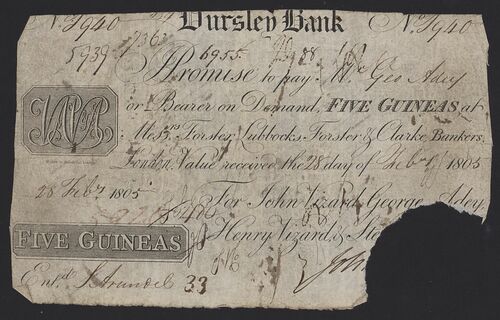 N. J940 Dursley Bank N. J940
5939 6955
Promise to pay Mr Geo Adey
or Bearer on Demand, FIVE GUINEAS at
Messrs Forster Lubbocks Forster & Clarke, Bankers,
London, Value received the 28 day of Feby 1805
28 Feby 1805
For John Vizard George Adey
Henry Vizard &
FIVE GUINEAS
Entd. J. Arundel 33
John